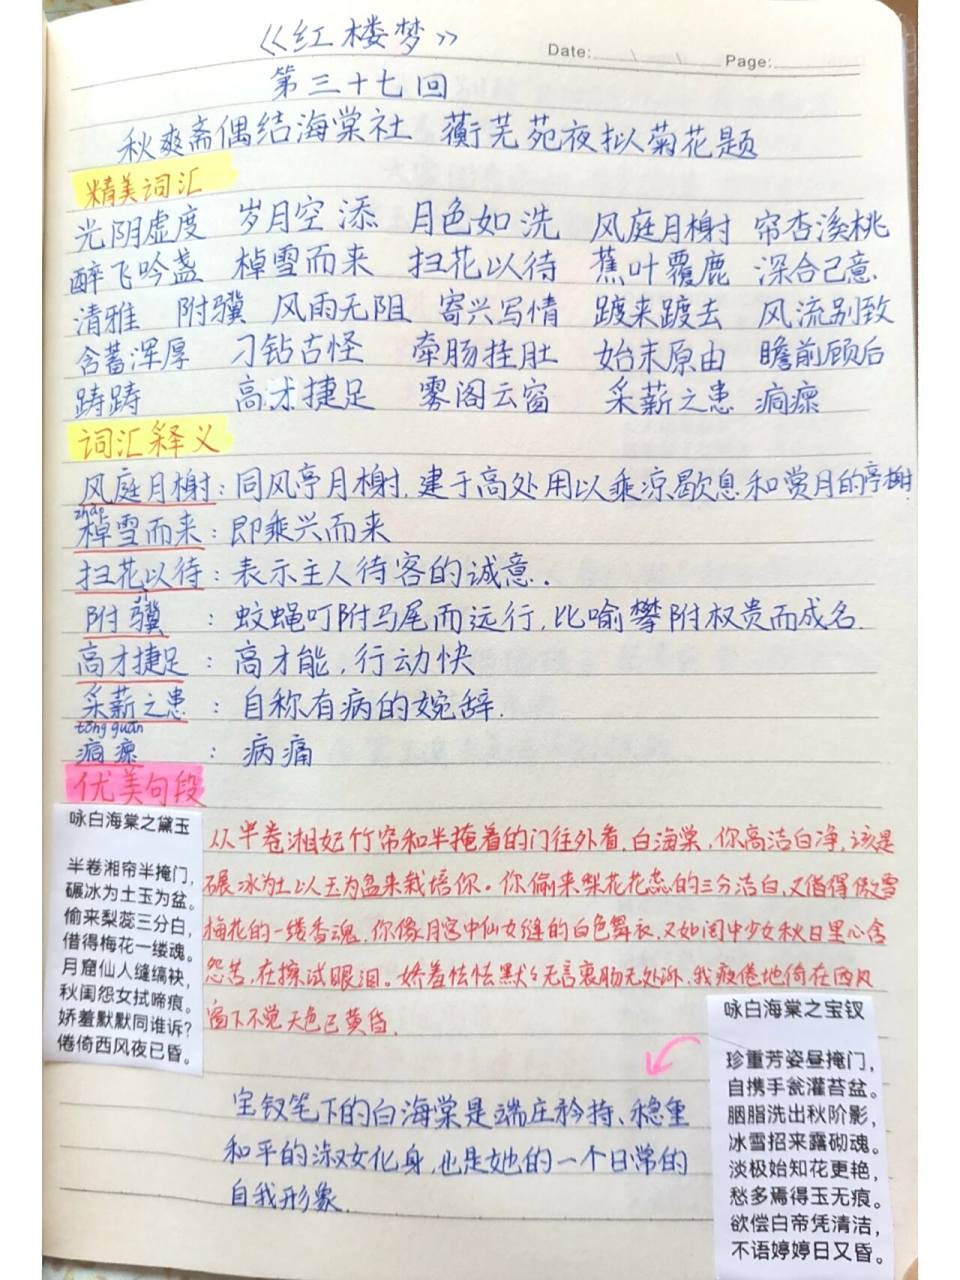 《红楼梦》
Date: / / Page:
第三十七回
秋爽斋偶结海棠社 蘅芜苑夜拟菊花题
精美词汇
光阴虚度 岁月空添 月色如洗 风庭月榭 帘杏溪桃
醉飞吟盏 棹雪而来 扫花以待 蕉叶覆鹿 深合己意
清雅 附骥 风雨无阻 寄兴写情 踱来踱去 风流别致
含蓄浑厚 刁钻古怪 牵肠挂肚 始末原由 瞻前顾后
踌踌 高才捷足 雾阁云窗 采薪之患 痌瘝
词汇释义
风庭月榭：同风亭月榭，建于高处用以乘凉歇息和赏月的亭榭
zhào
棹雪而来：即乘兴而来
扫花以待：表示主人待客的诚意.
jì
附骥：蚊蝇叮附马尾而远行，比喻攀附权贵而成名.
高才捷足：高才能，行动快
采薪之患：自称有病的婉辞.
tōng guān
痌瘝：病痛
优美句段
咏白海棠之黛玉
半卷湘帘半掩门，
碾冰为土玉为盆。
偷来梨蕊三分白，
借得梅花一缕魂。
月窟仙人缝缟袂，
秋闺怨女拭啼痕。
娇羞默默同谁诉？
倦倚西风夜已昏。
从半卷湘妃竹帘和半掩着的门往外看，白海棠，你高洁白净，该是
碾冰为土以玉为盆来栽培你。你偷来梨花花蕊的三分洁白，又借得傲雪
梅花的一缕香魂，你像月宫中仙女缝的白色舞衣，又如闺中少女秋日里心含
怨苦，在擦试眼泪。娇羞怯怯默々无言衷肠无处诉，我疲倦地倚在西风
窗下不觉天色已黄昏.
咏白海棠之宝钗
珍重芳姿昼掩门，
自携手瓮灌苔盆。
胭脂洗出秋阶影，
冰雪招来露砌魂。
淡极始知花更艳，
愁多焉得玉无痕。
欲偿白帝凭清洁，
不语婷婷日又昏。
宝钗笔下的白海棠是端庄矜持、稳重
和平的淑女化身，也是她的一个日常的
自我形象.